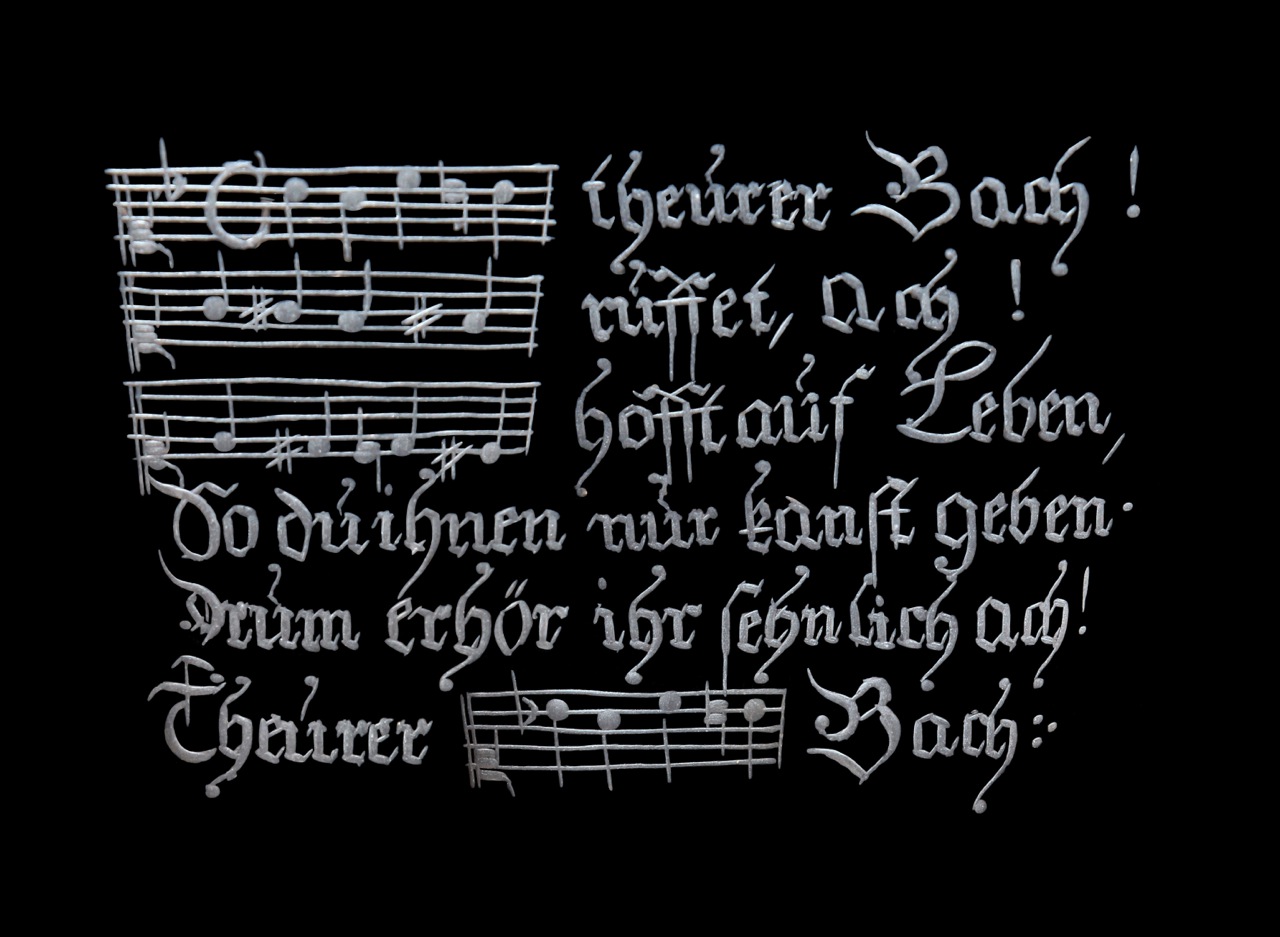 theurer Bach!
ruffet, ach!
hofft auf Leben,
So du ihnen nur kanst geben.
Drum erhör ihr sehnlich ach!
Theurer Bach: